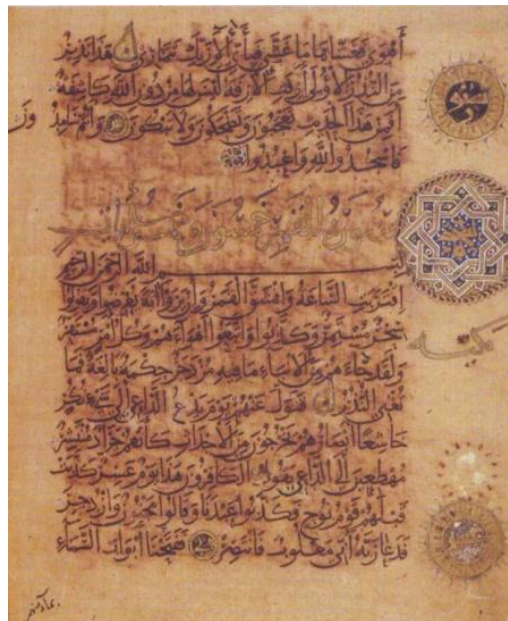 أهوى فغشاها ما غشى فبأي آلاء ربك تتمارى هذا نذير
من النذر الأولى أزفت الآزفة ليس لها من دون الله كاشفة
أفمن هذا الحديث تعجبون وتضحكون ولا تبكون وأنتم سامد ون
فاسجدوا لله واعبدوا
سورة القمر خمسون وخمس آيات
بسم الله الرحمن الرحيم
اقتربت الساعة وانشق القمر وإن يروا آية يعرضوا ويقولوا
سحر مستمر وكذبوا واتبعوا أهواءهم وكل أمر مستقر
مكية
ولقد جاءهم من الأنباء ما فيه مزدجر حكمة بالغة فما
تغني النذر فتول عنهم يوم يدع الداعي إلى شيء نكر
خاشعا أبصارهم يخرجون من الأجداث كأنهم جراد منتشر
مهطعين إلى الداعي يقول الكافرون هذا يوم عسر كذبت
قبلهم قوم نوح فكذبوا عبدنا وقالوا مجنون وازدجر
فدعا ربه أني مغلوب فانتصر ففتحنا أبواب السماء
بماء منهمر